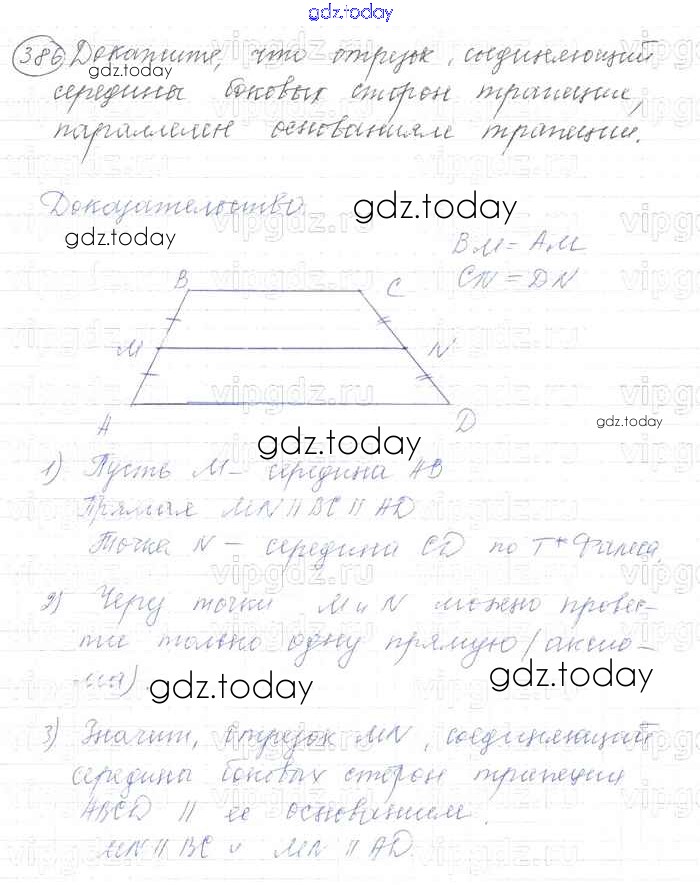 gdz.today
386 Докажите, что отрезок, соединяющий
gdz.today
середины боковых сторон трапеции,
параллелен основаниям трапеции.
Доказательство.
gdz.today
gdz.today
BM = AM
CN = DN
B C
M N
A D
gdz.today
gdz.today
1) Пусть M - середина AB
Прямая MN || BC || AD
Точка N - середина CD по т. Фалеса.
vipgdz.ru
2) Через точки M и N можно провес-
ти только одну прямую (аксио-
ма).
gdz.today
gdz.today
3) Значит, отрезок MN, соединяющий
середины боковых сторон трапеции
ABCD || ее основаниям.
MN || BC и MN || AD.